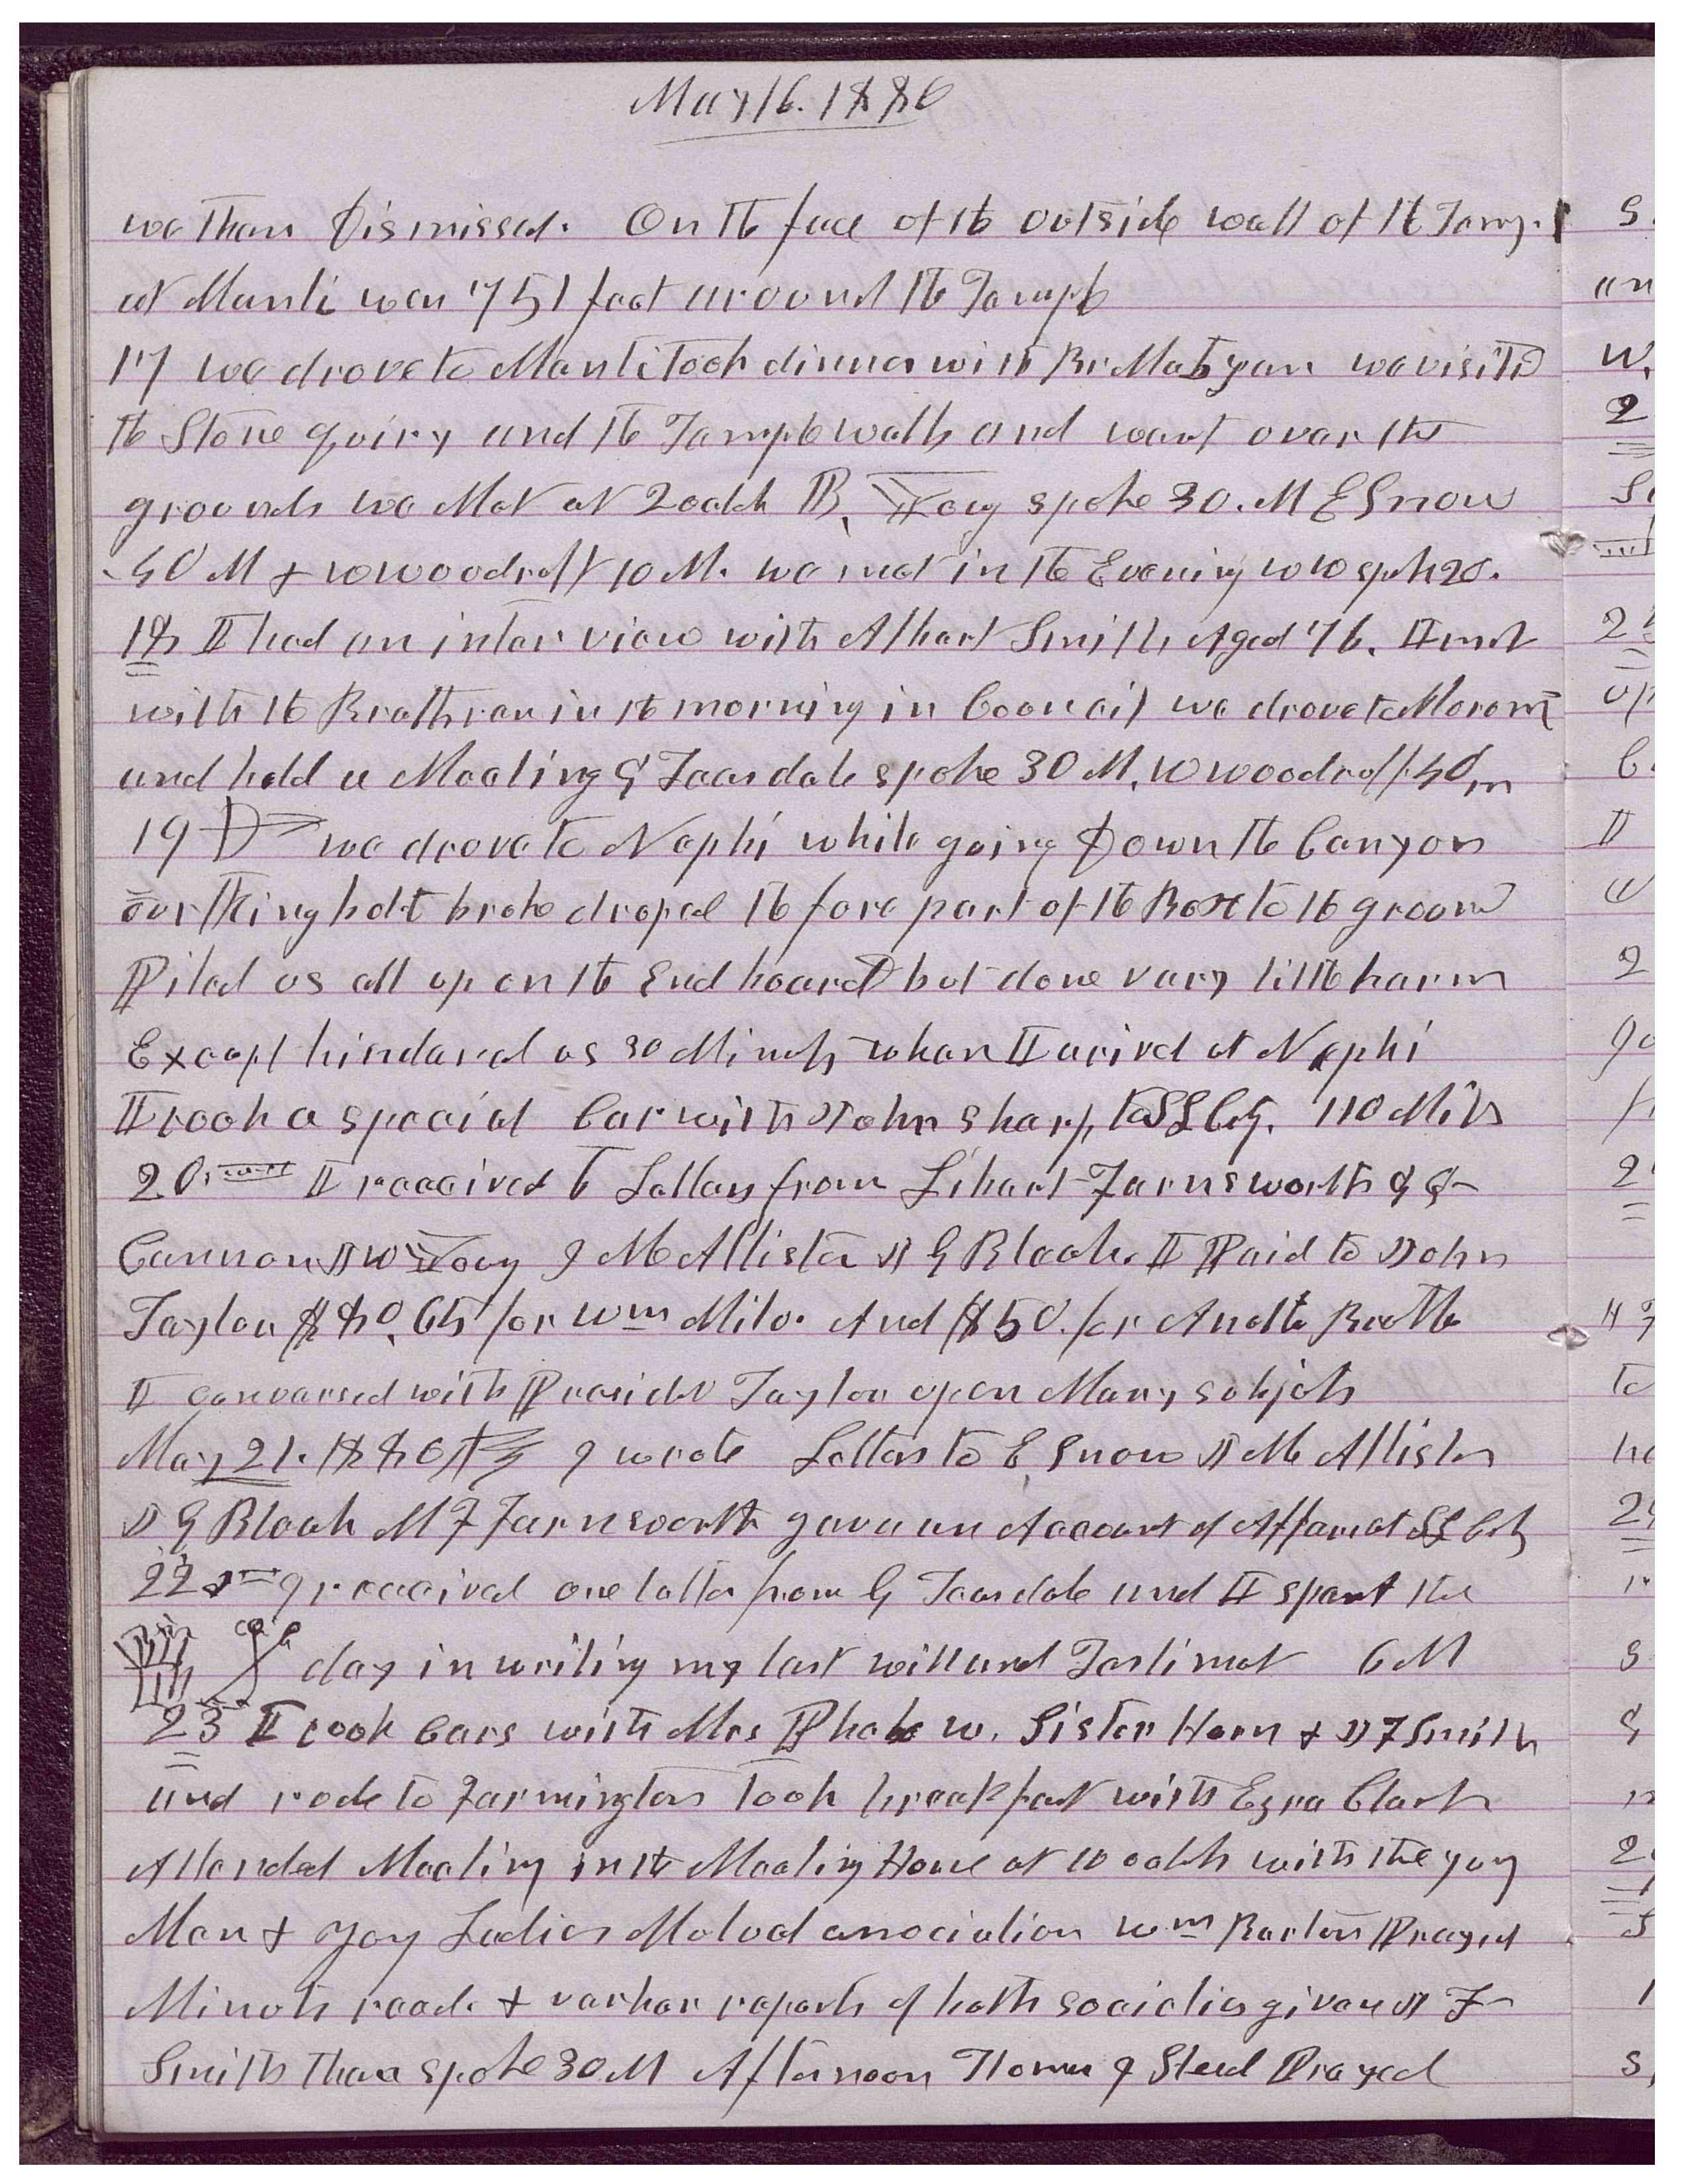 May 16. 1880
we then Dismissed. On the face of the outside wall of the Temp.
at Manti was 751 feet around the Temple
17 we drove to Manti took dinner with Br Mabyan we visited
the Stone quiry and the Temple walls and went over the
grounds we Met at 2 oclok B. Young spoke 30. M E Snow
40 M & W Woodruff 10 M. we met in the Evening WW spok 20.
18 I had an interview with Albert Smith Aged 76. I met
with the Brethren in the morning in Council we drove to Moroni
and held a Meeting G Teasdale spoke 30 M, W Woodruff 40 m
19 we drove to Nephi while going Down the Canyon
our King bolt broke droped the fore part of the Box to the ground
Piled us all up on the End board but done very little harm
Except hindered us 30 Minuts when I arived at Nephi
I took a special Car with John Sharp, to SL City. 110 Miles
20. I received 6 Letters from Libert Farnsworth G Q
Cannon J W Young J McAllister J G Bleak. I Paid to John
Taylor $80.65 for Wm Milo. And $50. for
I conversed with President Taylor upon Many subjets
May 21. 1880 I wrote Letters to E Snow J McAllister
J G Bleak M F Farnsworth gave an Account of Affairs at SL City
22 I received one letter from G Teasdale and I spent the
day in writing my last will and Testiment 6 M
23 I took Cars with Mrs Phebe W. Sister Horn & J F Smith
and rode to Farmington took breakfast with Ezra Clark
Attended Meeting in the Meeting House at 10 oclok with the yung
Men & yong Ladies Mutual association Wm Barton Prayed
Minuts read & verber reports of both societies given J F
Smith then spoke 30 M Afternoon Thomas J Steed Prayed